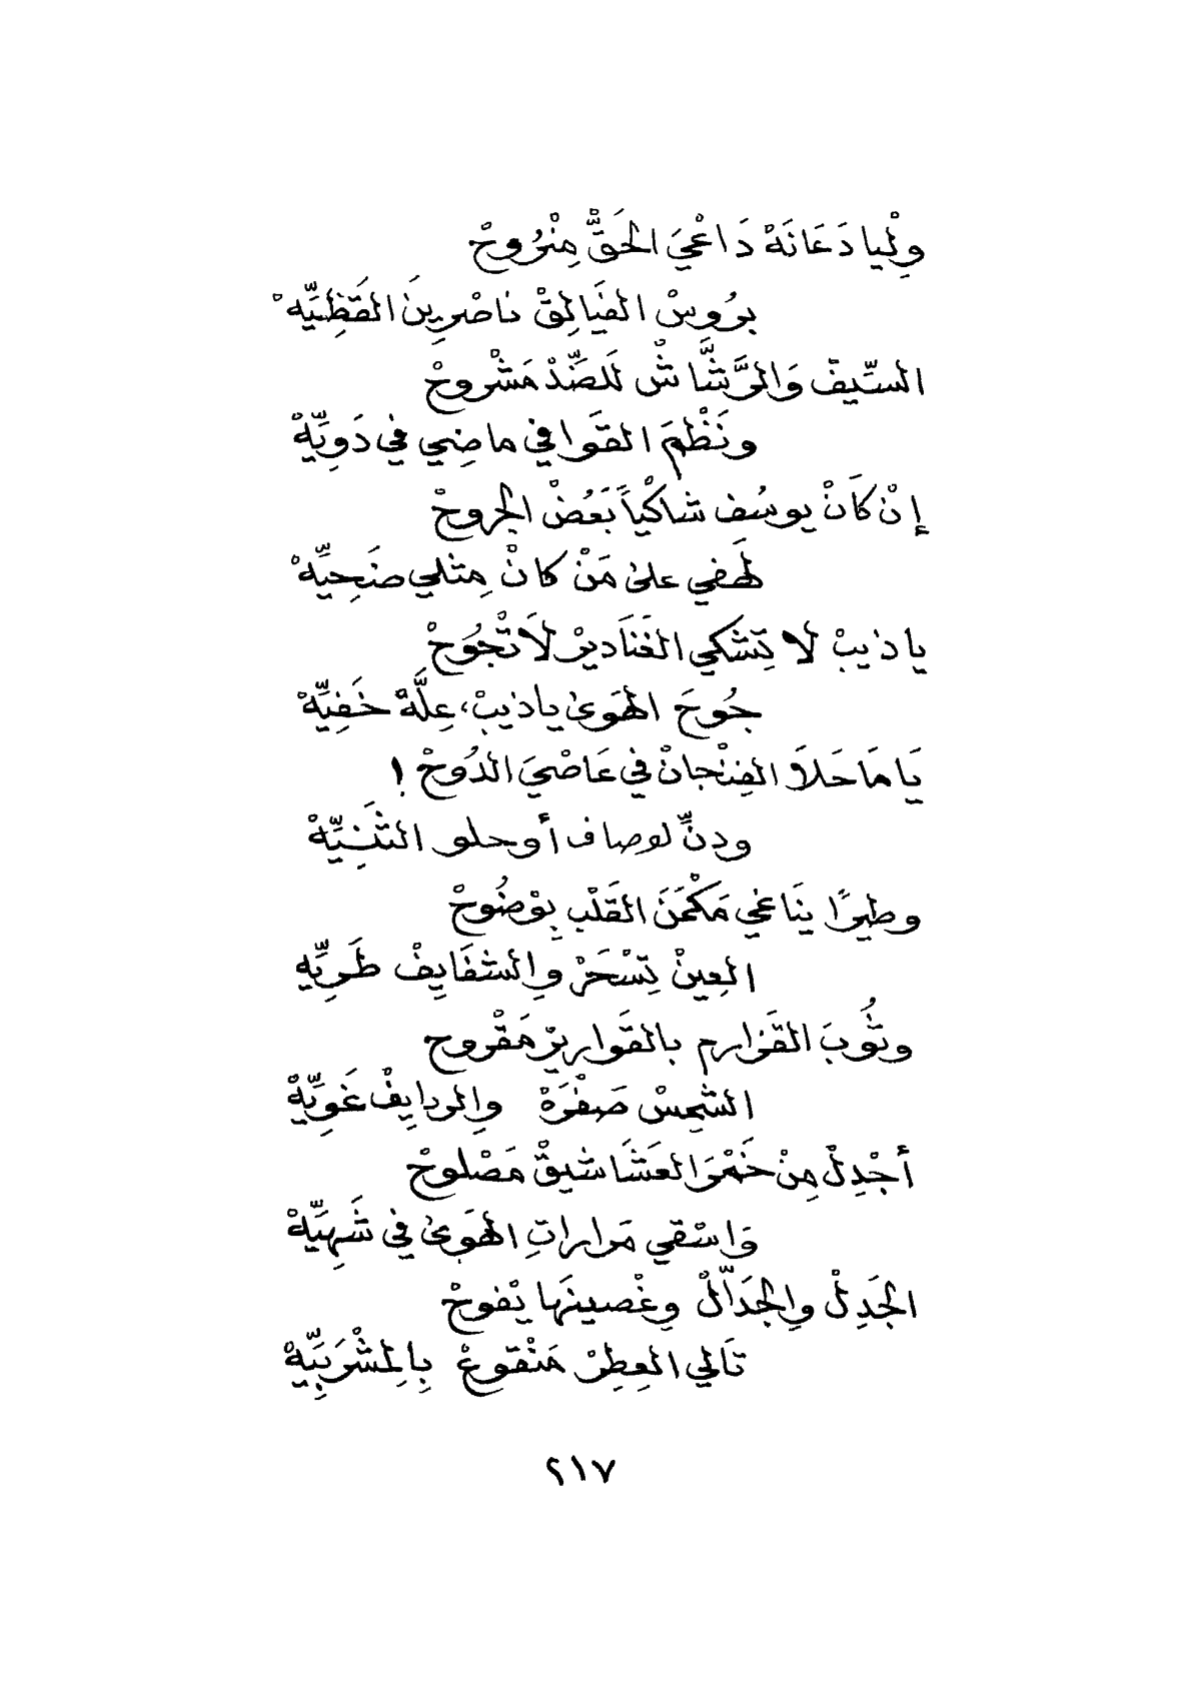 وِلْيا دَعَانَهْ دَاعْيَ الحَقّْ مِنْرُوحْ
برُوسْ الفيَالِقْ ناصْرِينَ القَظِيِّهْ
السِّيفْ وَالرَّشَّاشْ لَلضِّدْ مَشْروحْ
ونَظْمَ القوَافي ماضِي في دَوِيِّهْ
إنْ كَانْ يوسُف شاكْياً بَعُضْ الجروحْ
لَهفي على مَنْ كانْ مِثلي ضَحِيِّهْ
يا ذيبْ لا تِشكي الغَنَاديرْ لَاتْجُوحْ
جُوحَ الهَوَى ياذيبْ، عِلَّهْ خَفِيِّهْ
يَا مَا حَلاَ الفِنْجانْ في عَاصْيَ الدُوحْ!
ودنِّ لوصاف أوحلو الثَنِيِّهْ
وطيرًا ينَاغي مَكْمَنَ القَلْب بِوْضُوحْ
العِينْ تِسْحَرْ والشفَايِفْ طَرِيِّه
وثُوبَ القَزارم بالقَواريرْ مَقْروح
الشمِسْ صَفْرَهْ والردايِفْ غَوِيِّهْ
أجْدِلْ مِنْ خَمْرَ العَشَاشيقْ مَصْلوحْ
وَاسْقي مَراراتِ الهَوَى في شَهِيِّهْ
الجَدِلْ والجَدَّالْ وغْصينَها يْفوحْ
تَالي العِطِرْ مَنْقوعْ بِالمِشْرَبِيِّهْ
٢١٧